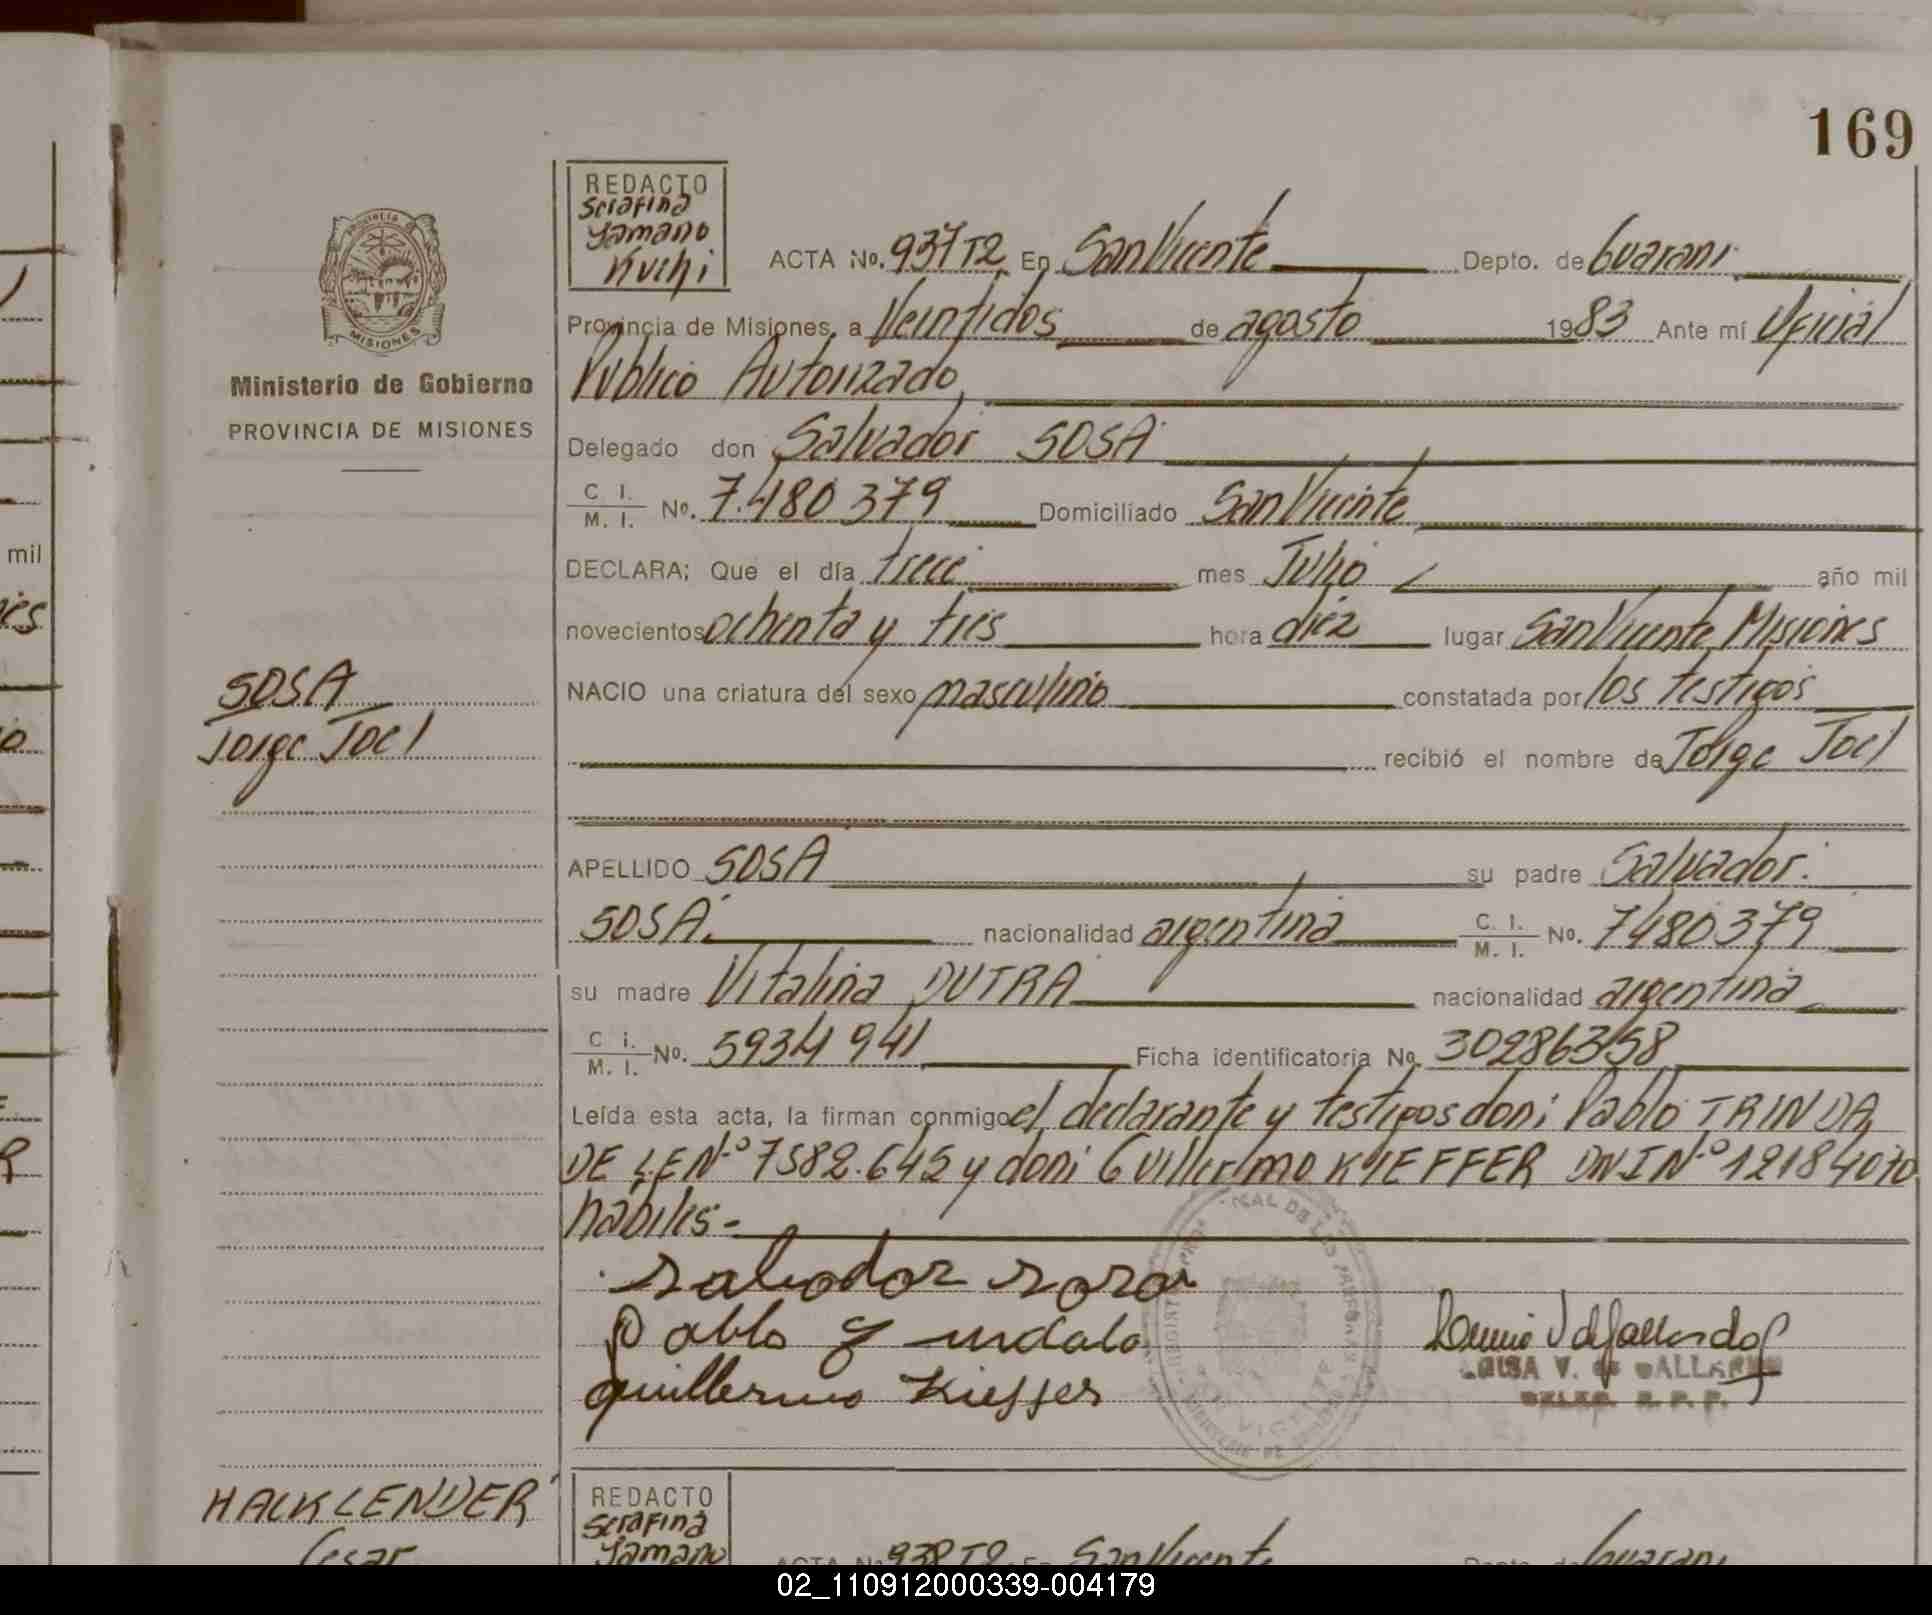 169
REDACTO
Serafina
Yamano
Kuchi
ACTA No. 937T2 En San Vicente Depto. de Guarani
Provincia de Misiones, a Veintidos de agosto 1983 Ante mí Oficial
Publico Autorizado,
Delegado don Salvador SOSA
C. I. / M. I. No. 7.480 379 Domiciliado San Vicente
DECLARA; Que el día trece mes Julio año mil
novecientos ochenta y tres hora diez lugar San Vicente, Misiones
NACIO una criatura del sexo masculino constatada por los testigos
recibió el nombre de Jorge Joel
APELLIDO SOSA su padre Salvador
SOSA. nacionalidad argentina C. I. / M. I. No. 7480379
su madre Vitalina DUTRA nacionalidad argentina
C. I. / M. I. No. 5934 941 Ficha identificatoria No. 30286358
Leída esta acta, la firman conmigo el declarante y testigos don: Pablo TRINDA
DE L.E N.º 7582.645 y don: Guillermo KIEFFER DNI N.º 12184070
habiles.-
Salvador Sosa
Pablo
Guillermo Kieffer
LUISA V. de GALLARDO
DELEG. R. P. P.
MISIONES
Ministerio de Gobierno
PROVINCIA DE MISIONES
SOSA
Jorge Joel
HAUKLENDER
Cesar
REDACTO
Serafina
Yamano
ACTA No. 938T2 En San Vicente Depto. de Guarani
mil
02_110912000339-004179